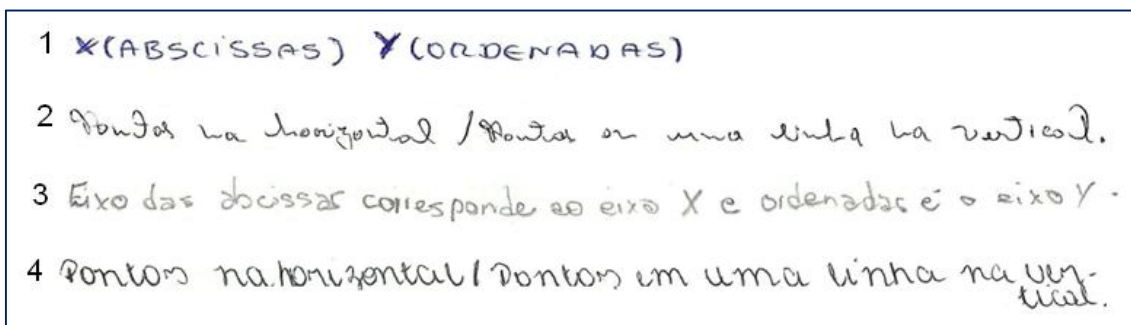 1 X(ABSCISSAS) Y(ORDENADAS)
2 Pontos na horizontal / Pontos em uma linha na vertical.
3 Eixo das abcissas corresponde ao eixo X e ordenadas é o eixo Y.
4 Pontos na horizontal / Pontos em uma linha na ver-
tical.